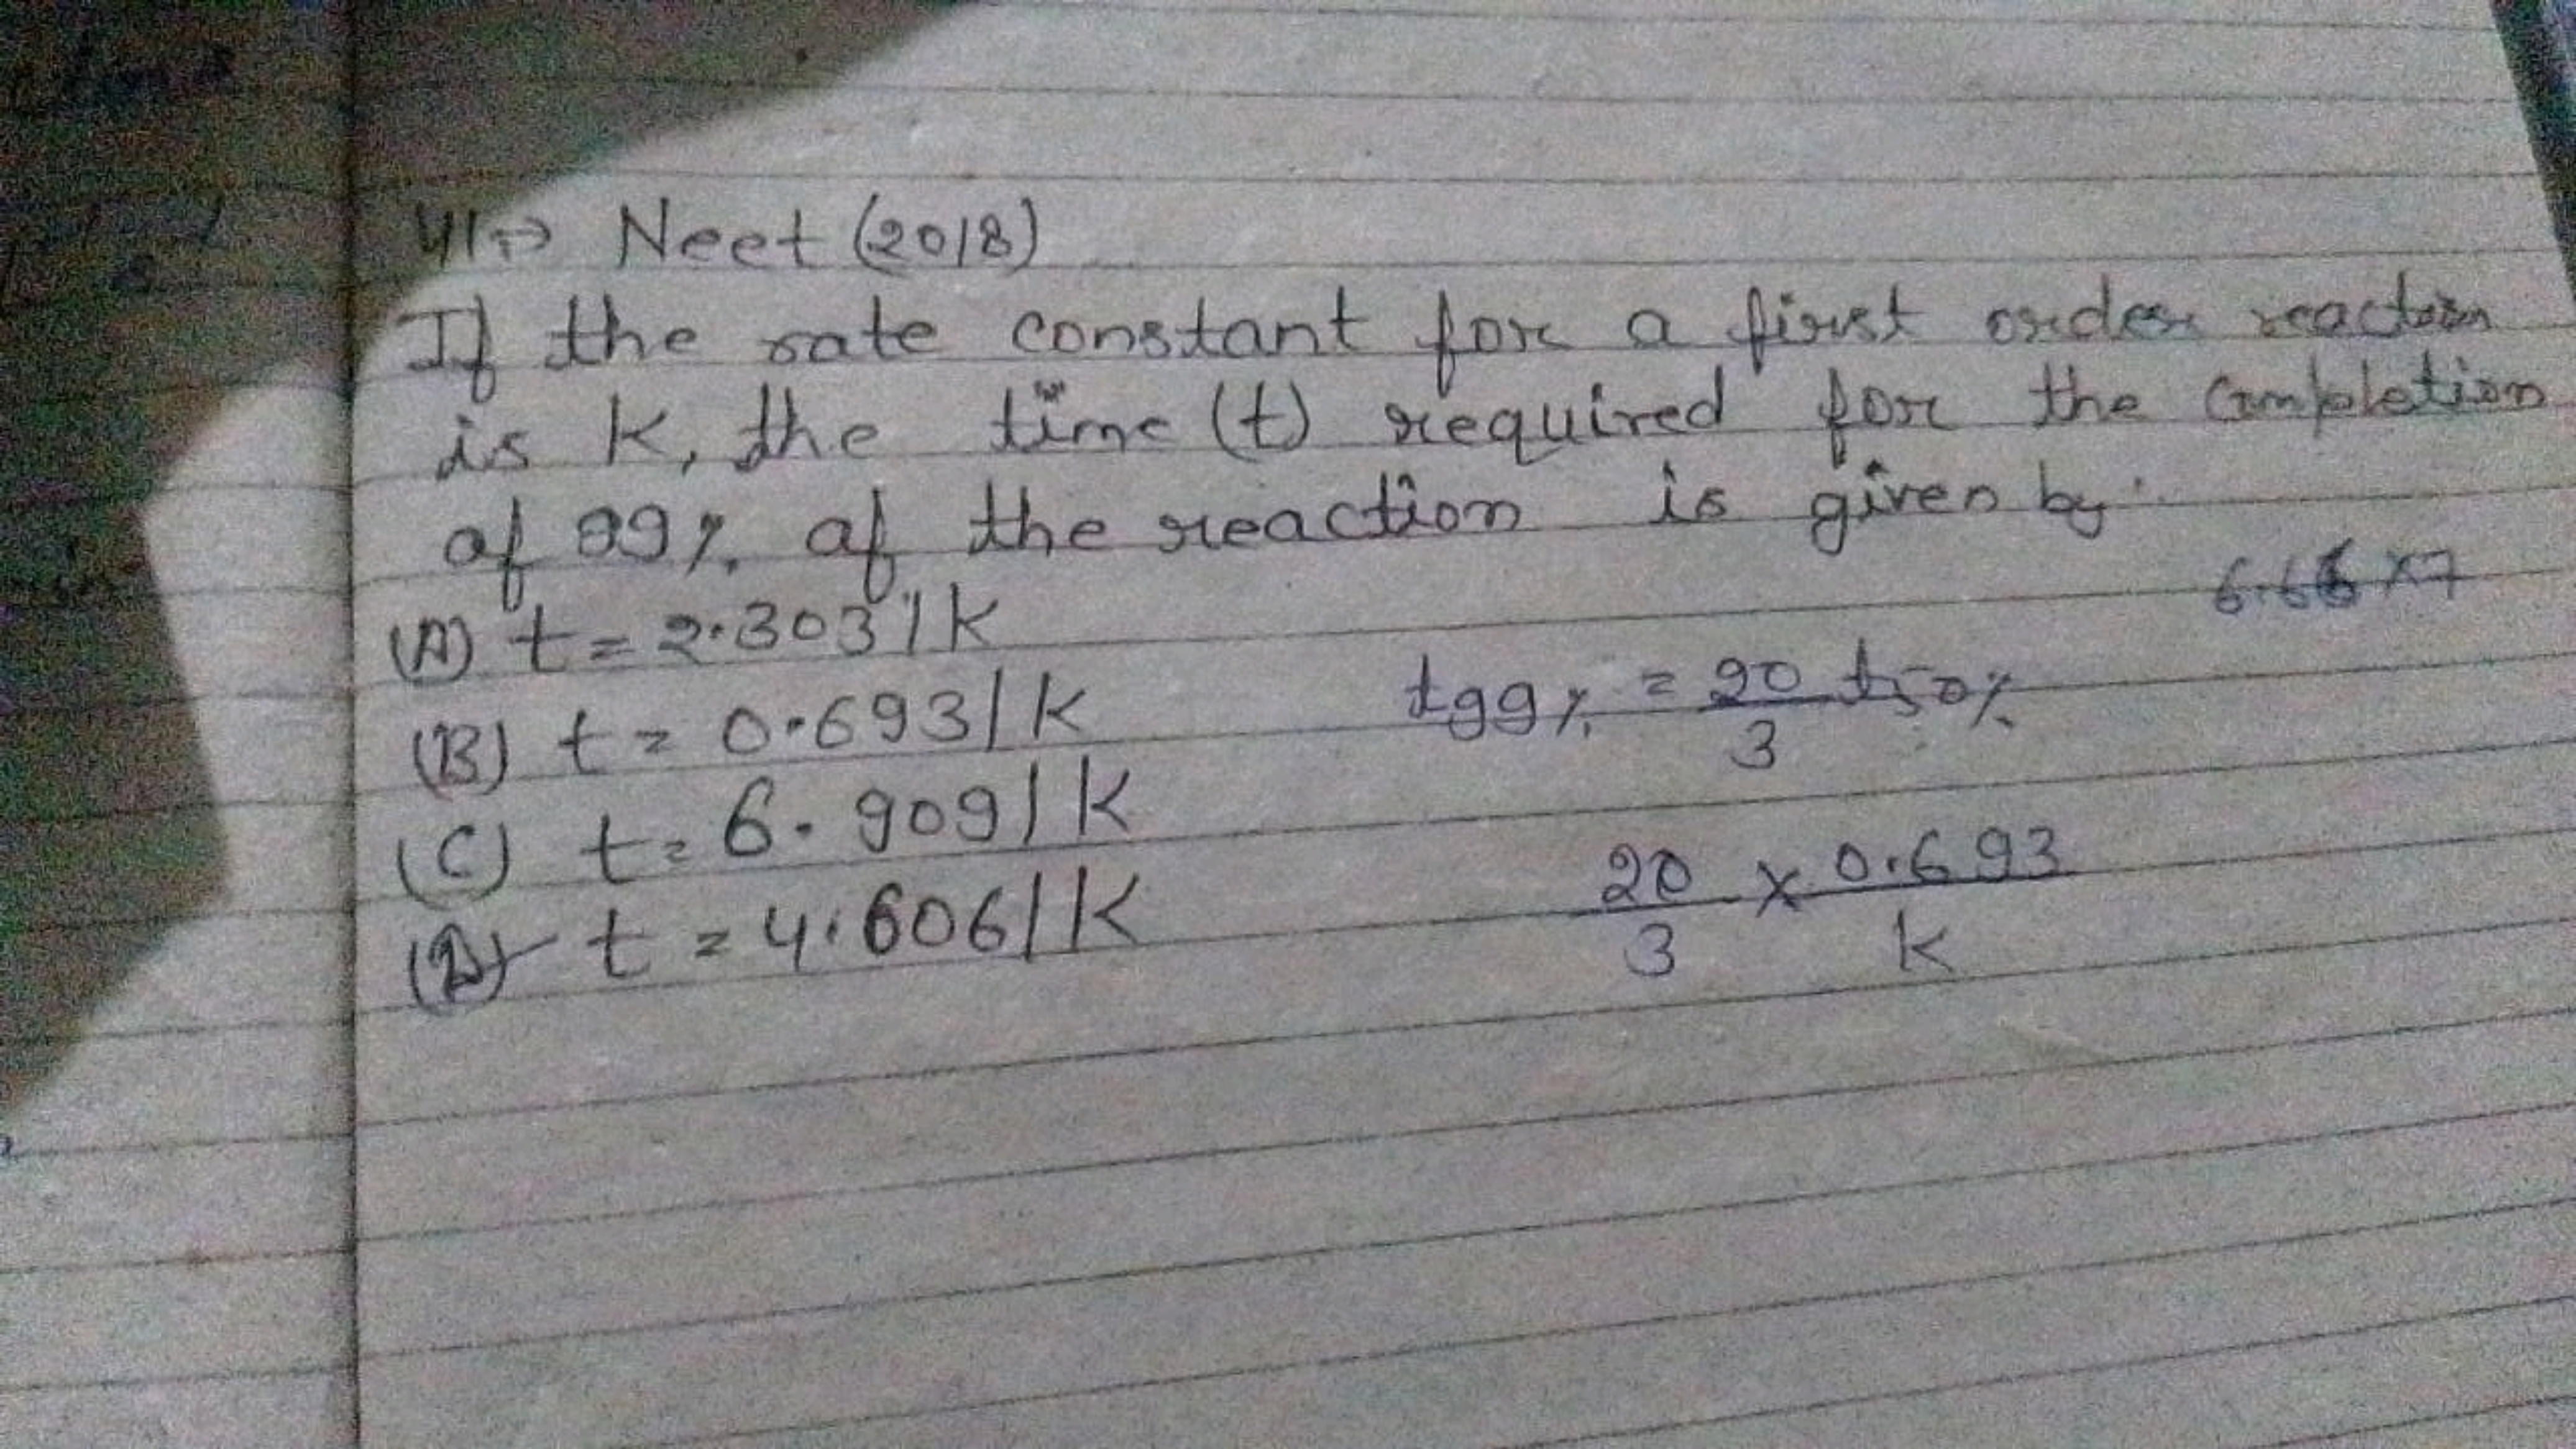 41→ Neet (2018)
If the rate constant for a first order reaction
is K, the time (t) required for the completion
of 99%. of the reaction is given by:
(A) t = 2.303/K
6.66 x 7
(B) t = 0.693/K
t99% = 20/3 t50%
(C) t = 6.909/K
(D) t = 4.606/K
20/3 x 0.693/K